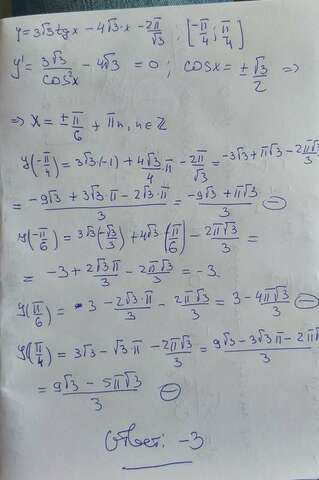 y=3√3 tg x - 4√3·x - 2π/√3 ; [-π/4 ; π/4]
y' = 3√3/cos²x - 4√3 = 0 ; cos x = ± √3/2 ⇒
⇒ x = ± π/6 + πn, n∈Z
y(-π/4) = 3√3·(-1) + 4√3/4 · π - 2π/√3 = -3√3 + π√3 - 2π√3/3
= -9√3 + 3√3·π - 2√3·π/3 = -9√3 + π√3/3 ⊖
y(-π/6) = 3√3(-√3/3) + 4√3·(π/6) - 2π√3/3 =
= -3 + 2√3π/3 - 2π√3/3 = -3.
y(π/6) = 3 - 2√3·π/3 - 2π√3/3 = 3 - 4π√3/3
y(π/4) = 3√3 - √3·π - 2π√3/3 = 9√3 - 3√3π - 2π√3/3
= 9√3 - 5π√3/3 ⊖
Ответ: -3